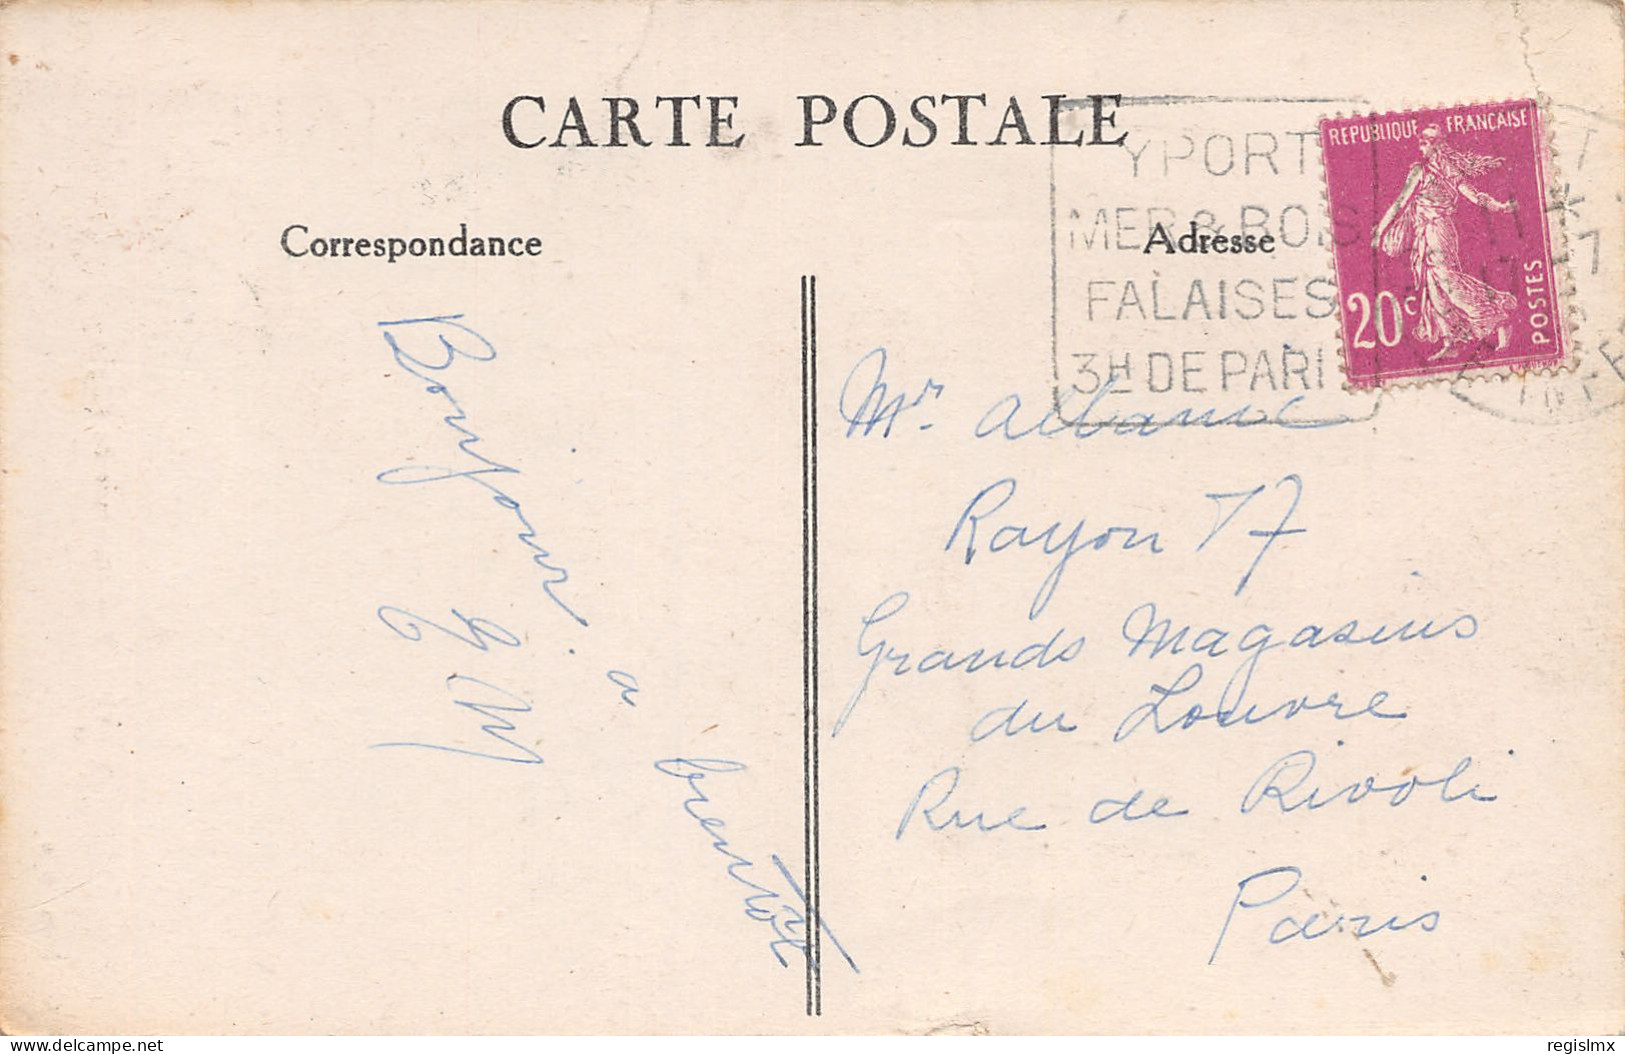 CARTE POSTALE
Correspondance
Adresse
YPORT
MER & BOIS
FALAISES
3H DE PARI
REPUBLIQUE FRANÇAISE
20c
POSTES
Bonjour. a bientôt
Mr
Rayon 77
Grands Magasins
du Louvre
Rue de Rivoli
Paris
delcampe.net
regislmx